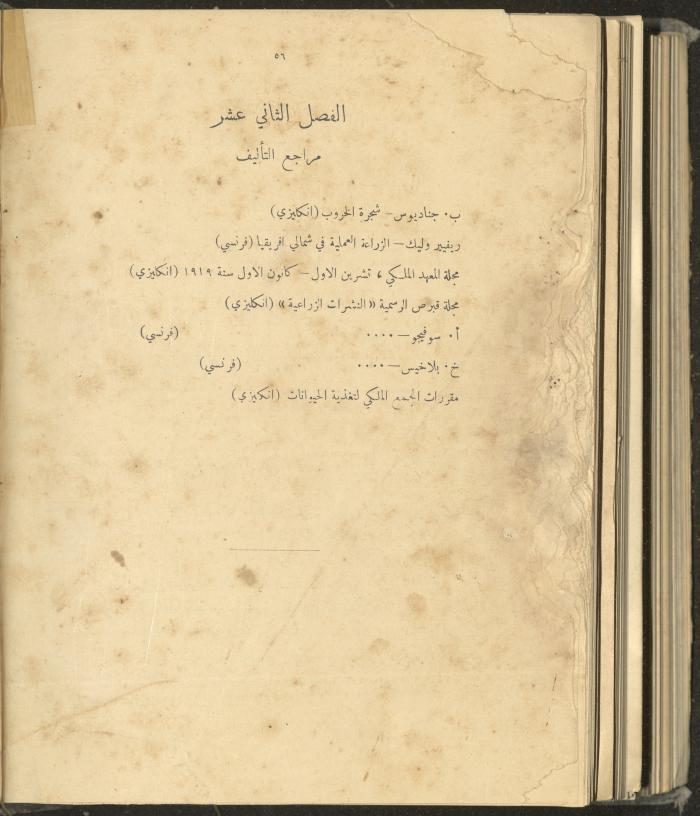 ٥٦
الفصل الثاني عشر
مراجع التأليف
ب. جناديوس — شجرة الخروب (انكليزي)
ريفيير وليك — الزراعة العملية في شمالي افريقيا (فرنسي)
مجلة المعهد الملكي ، تشرين الاول — كانون الاول سنة ١٩١٩ (انكليزي)
مجلة قبرص الرسمية «النشرات الزراعية» (انكليزي)
أ. سوفيجو — .... (فرنسي)
خ. بلاخيس — .... (فرنسي)
مقررات الجمع الملكي لتغذية الحيوانات (انكليزي)